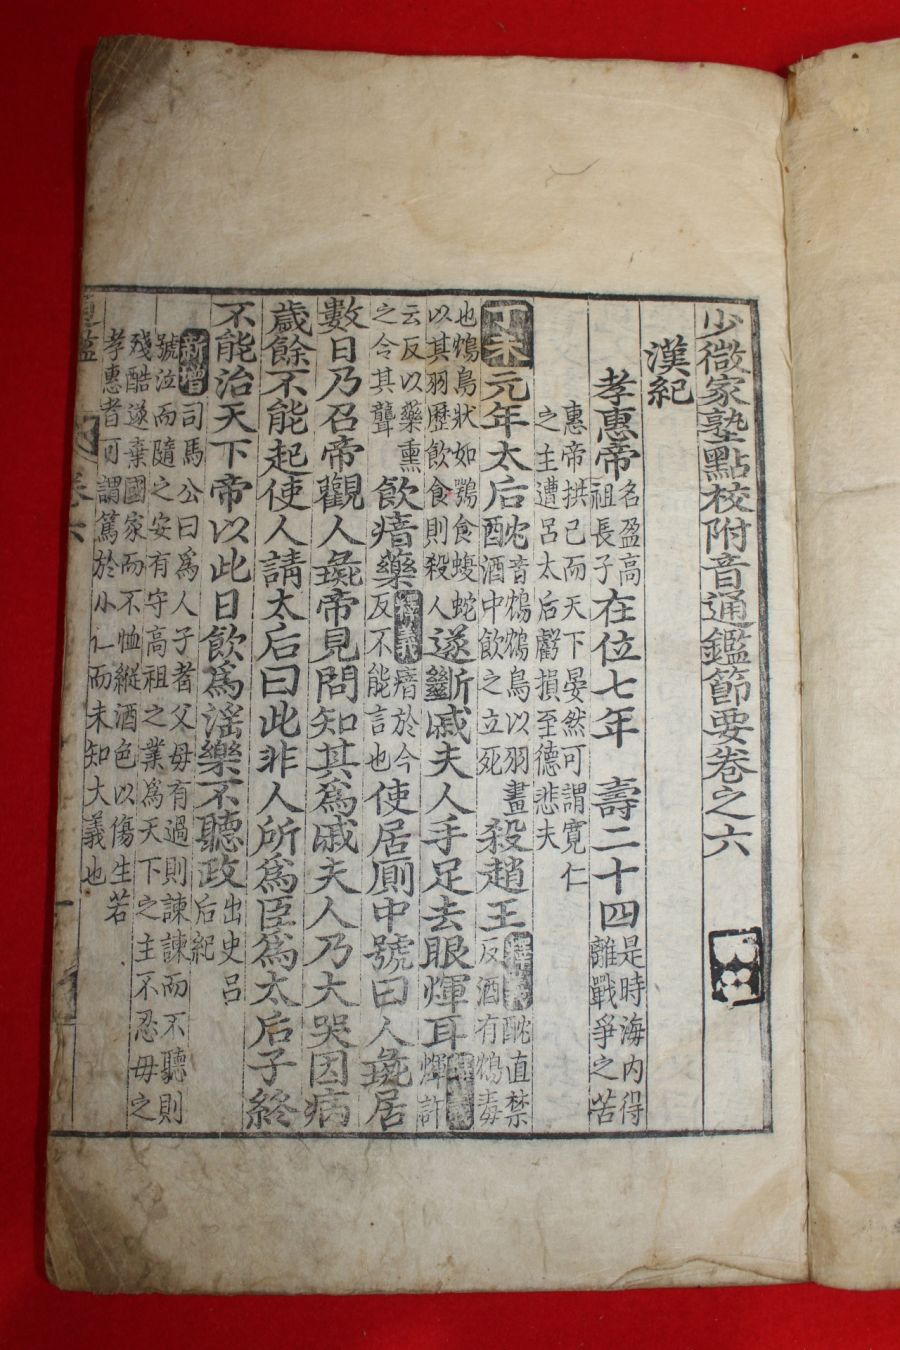 少微家塾點校附音通鑑節要卷之六
漢紀
孝惠帝名盈高祖長子在位七年 壽二十四是時海内得離戰爭之苦
惠帝拱己而天下晏然可謂寬仁之主遭呂太后虧損至德悲夫
元年太后酖音鴆鴆鳥以羽畫酒中飲之立死殺趙王酖直禁反酒有鴆毒
也鴆鳥狀如鶚食蝮蛇以其羽歷飲食則殺人遂斷戚夫人手足去眼煇耳煇許
云反以藥熏之令其聾飲瘖藥釋義瘖於今反不能言也使居厠中號曰人彘居
數日乃召帝觀人彘帝見問知其爲戚夫人乃大哭因病
歲餘不能起使人請太后曰此非人所爲臣爲太后子終
不能治天下帝以此日飲爲淫樂不聽政出史呂后紀
新增司馬公曰爲人子者父母有過則諫諫而不聽則
號泣而隨之安有守高祖之業爲天下之主不忍母之
殘酷遂棄國家而不恤縱酒色以傷生若
孝惠者可謂篤於小仁而未知大義也
卷六